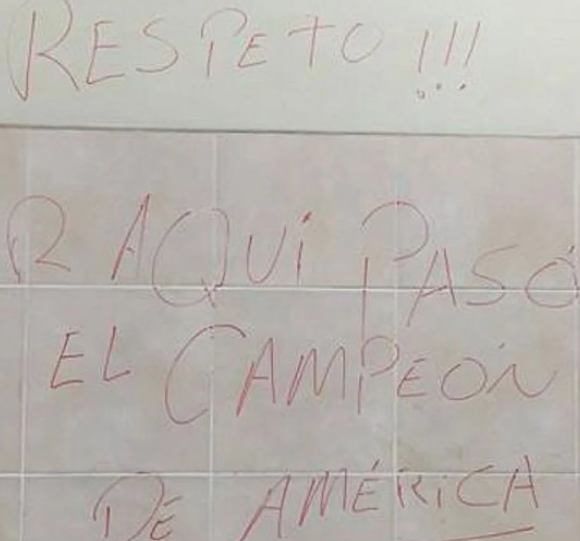 RESPETO !!!
R AQUÍ PASÓ
EL CAMPEÓN
DE AMÉRICA